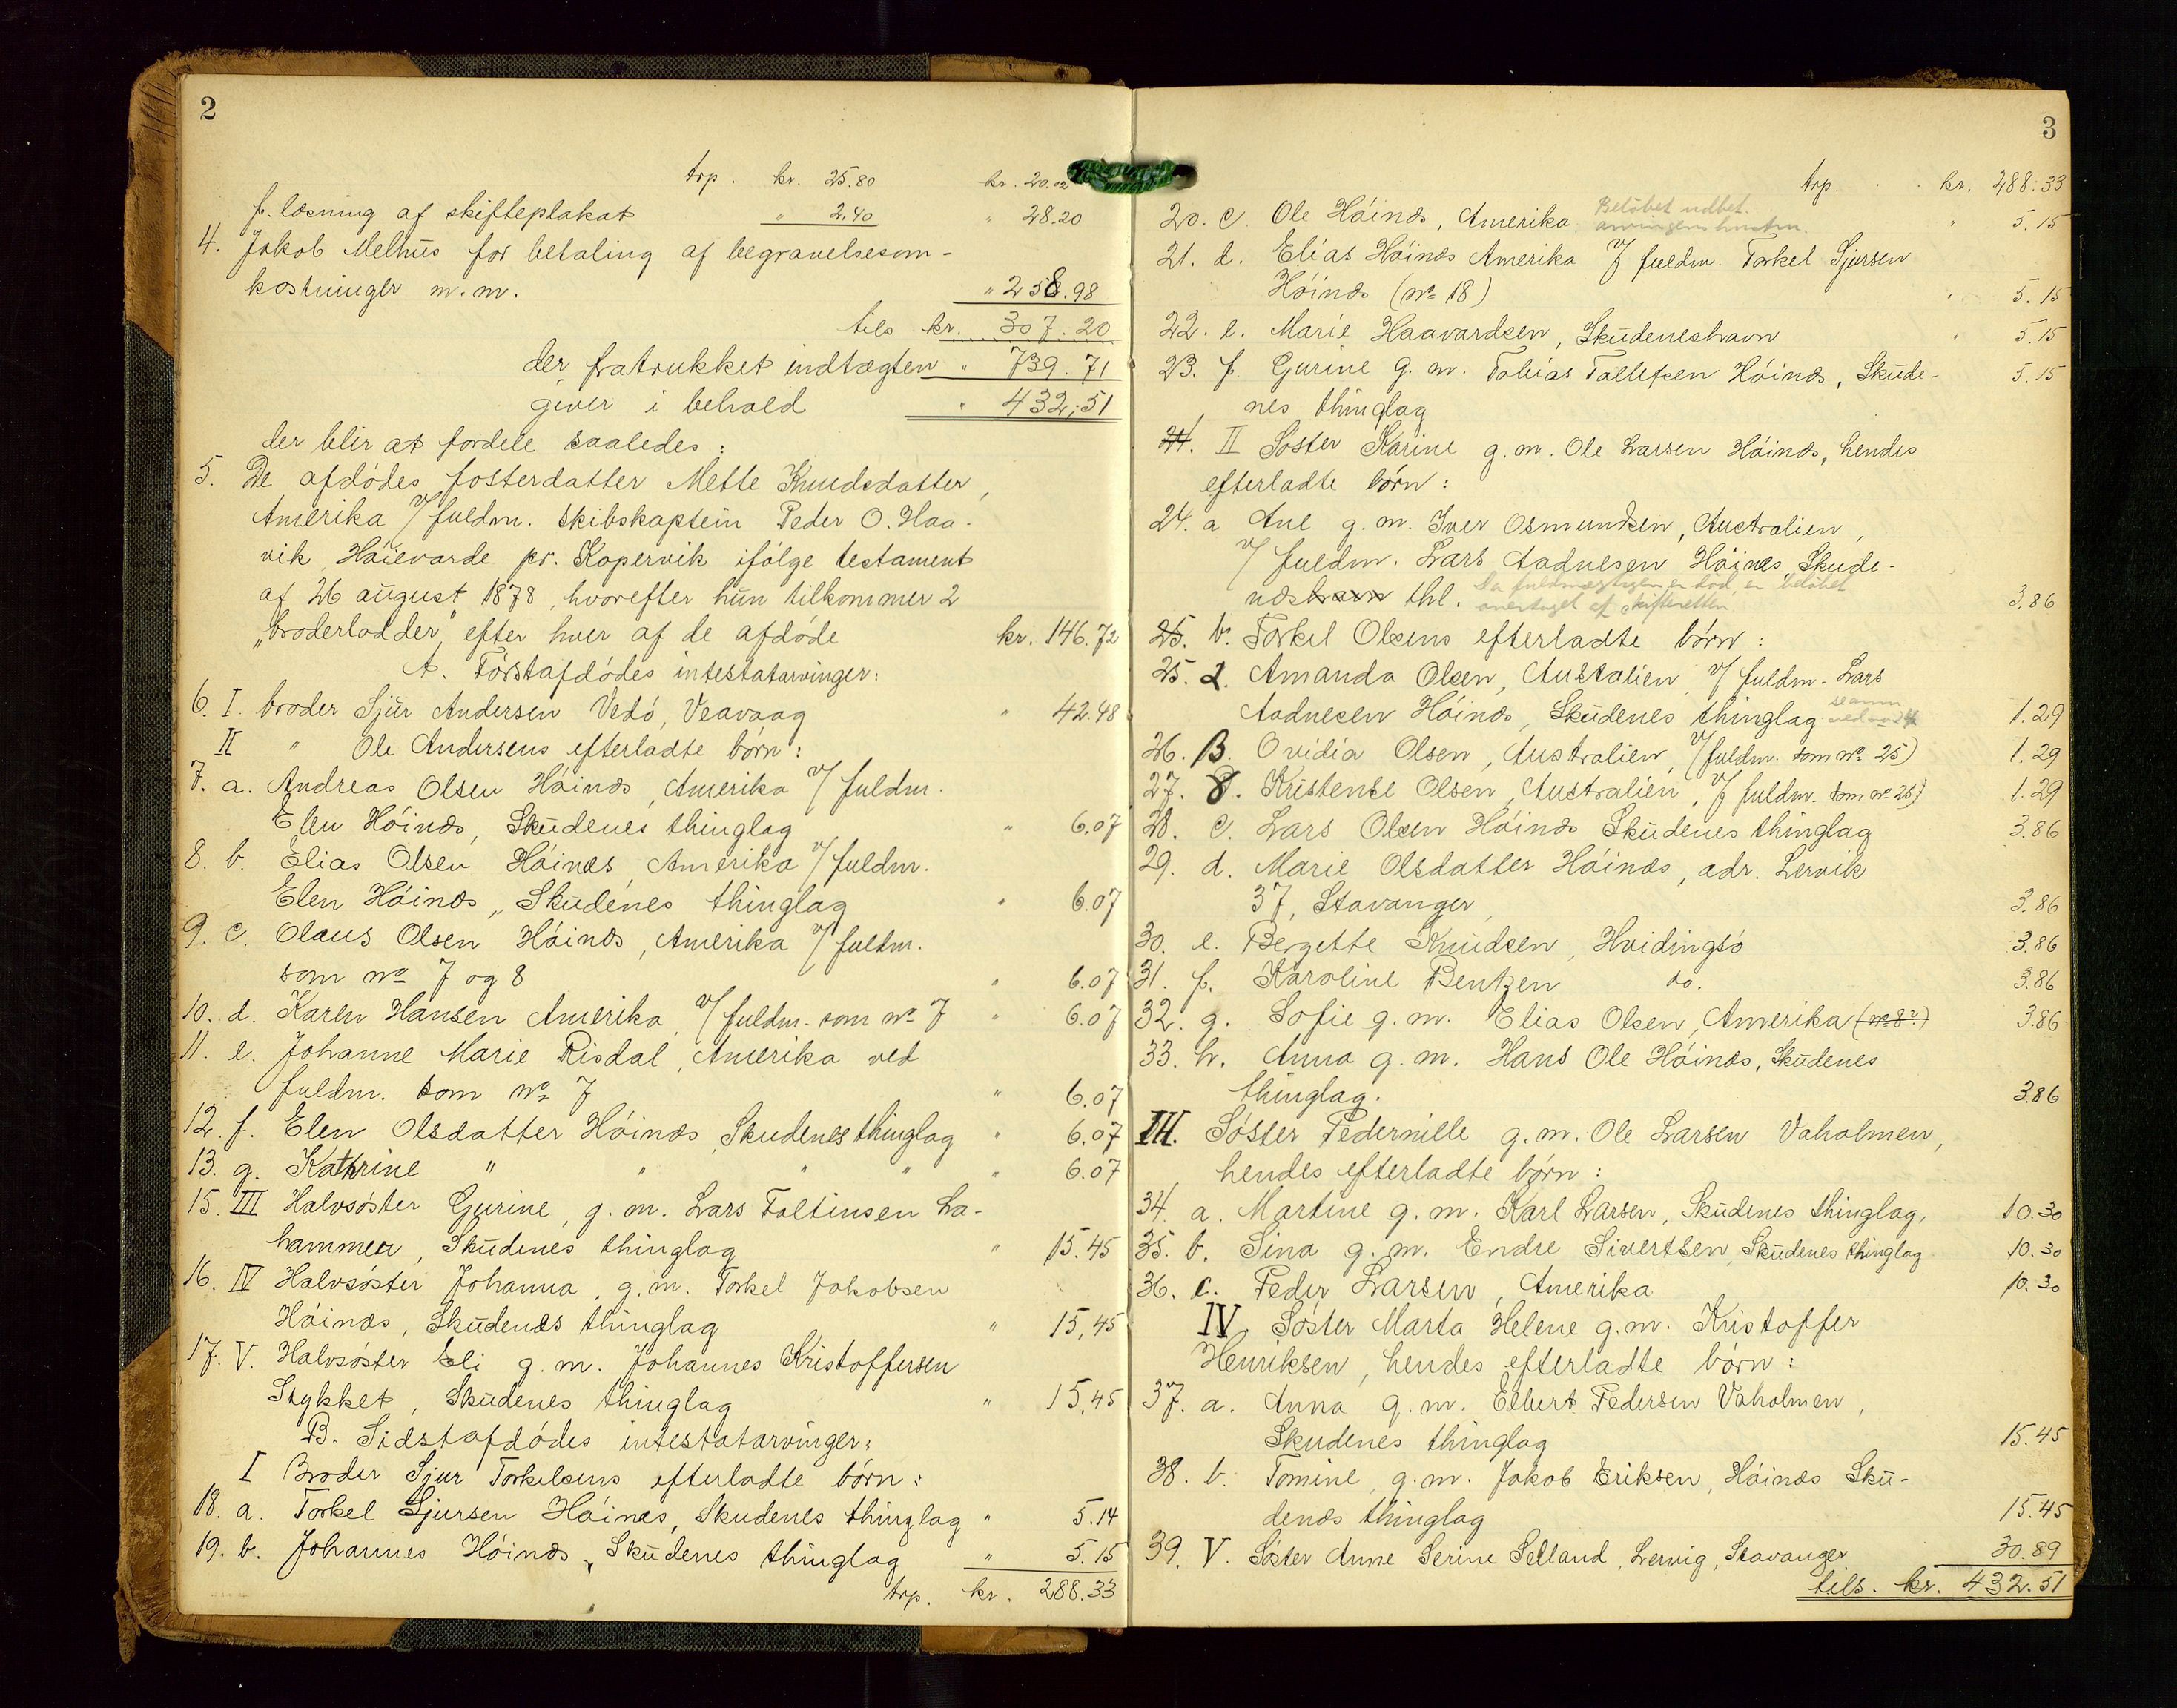 2
trp. kr. 25.80 kr. 20.02
f. læsning af skifteplakat " 2.40 " 28.20
4. Jokob Melhus for betaling af begravelsesom-
kostninger m.m. " 258.98
tils kr. 307.20
der fratrukket indtægten " 739.71
giver i behold " 432,51
der blir at fordele saaledes:
5. De afdödes fosterdatter Mette Knudsdatter,
Amerika v/ fuldm. skibskaptein Peder O. Haa-
vik Höievarde pr. Kopervik ifölge testament
af 26 august 1878, hvorefter hun tilkommer 2
"broderlodder" efter hver af de afdöde kr. 146.72
A. Förstafdödes intestatarvinger:
6. I. broder Sjur Andersen Vedö, Veavaag " 42.48
II " Ole Andersens efterladte börn:
7. a. Andreas Olsen Höinæs, Amerika v/ fuldm.
Elen Höinæs, Skudenes thinglag " 6.07
8. b. Elias Olsen Höinæs, Amerika v/ fuldm.
Elen Höinæs, Skudenes thinglag " 6.07
9. c. Olaus Olsen Höinæs, Amerika v/ fuldm.
som no 7 og 8 " 6.07
10. d. Karen Hansen Amerika, v/ fuldm. som no 7 " 6.07
11. e. Johanne Marie Risdal, Amerika ved
fuldm. som no 7 " 6.07
12. f. Elen Olsdatter Höinæs, Skudenes thinglag " 6.07
13. g. Kathrine " " " " " 6.07
15. III Halvsöster Gurine, g.m. Lars Foltinsen La-
hammer, Skudenes thinglag " 15.45
16. IV Halvsöster Johanna, g.m. Torkel Jakobsen
Höinæs, Skudenæs thinglag " 15,45
17. V. Halvsöster Eli g.m. Johannes Kristoffersen
Stykket, Skudenes thinglag " 15,45
B. Sidstafdödes intestatarvinger:
I Broder Sjur Torkelsens efterladte börn:
18. a. Torkel Sjursen Höinæs, Skudenes thinglag " 5.14
19. b. Johannes Höinæs, Skudenes thinglag " 5.15
trp. kr. 288.33
3
trp. kr. 288.33
20. c. Ole Höinæs, Amerika Belöbet udbet. " 5.15
arvingens hustru.
21. d. Elias Höinæs Amerika v/ fuldm. Torkel Sjursen
Höinæs (no 18) " 5.15
22. e. Marie Haavardsen, Skudeneshavn " 5.15
23. f. Gurine g.m. Tobias Tollefsen Höinæs, Skude- 5.15
nes thinglag
24. II Söster Karine g.m. Ole Larsen Höinæs, hendes
efterladte börn:
24. a Ane g.m. Iver Osmundsen, Australien,
v/ fuldm. Lars Aadnesen Höinæs, Skude-
næshavn thl. Da fuldmægtigen er död, er belöbet 3.86
overtaget af skifteretten
25. b. Torkel Olsens efterladte börn:
25. α. Amanda Olsen, Australien v/ fuldm. Lars
Aadnesen Höinæs, Skudenes thinglag se anm ved no 24 1.29
26. β. Ovidia Olsen, Australien, v/ fuldm. som no 25) 1.29
27. γ. Kristense Olsen, Australien, v/ fuldm. som no 25) 1.29
28. c. Lars Olsen Höinæs Skudenes thinglag 3.86
29. d. Marie Olsdatter Höinæs, adr. Lervik
37, Stavanger, 3.86
30. e. Bergette Knudsen, Hvidingsö 3.86
31. f. Karoline Bentzen do. 3.86
32. g. Sofie g.m. Elias Olsen, Amerika (no 8?) 3.86
33. h. Anna g.m. Hans Ole Höinæs, Skudenes
thinglag. 3.86
III. Söster Pedernille g.m. Ole Larsen Vaholmen,
hendes efterladte börn:
34. a. Martine g.m. Karl Larsen, Skudenes thinglag, 10.30
35. b. Sina g.m. Endre Sivertsen, Skudenes thinglag 10.30
36. c. Peder Larsen, Amerika 10.30
IV Söster Marta Helene g.m. Kristoffer
Henriksen, hendes efterladte börn:
37. a. Anna g.m. Elbert Pedersen Vaholmen,
Skudenes thinglag 15.45
38. b. Tomine g.m. Jakob Eriksen, Höinæs Sku-
denæs thinglag 15.45
39. V. Söster Anne Serine Selland, Lervig, Stavanger 30.89
tils. kr. 432.51